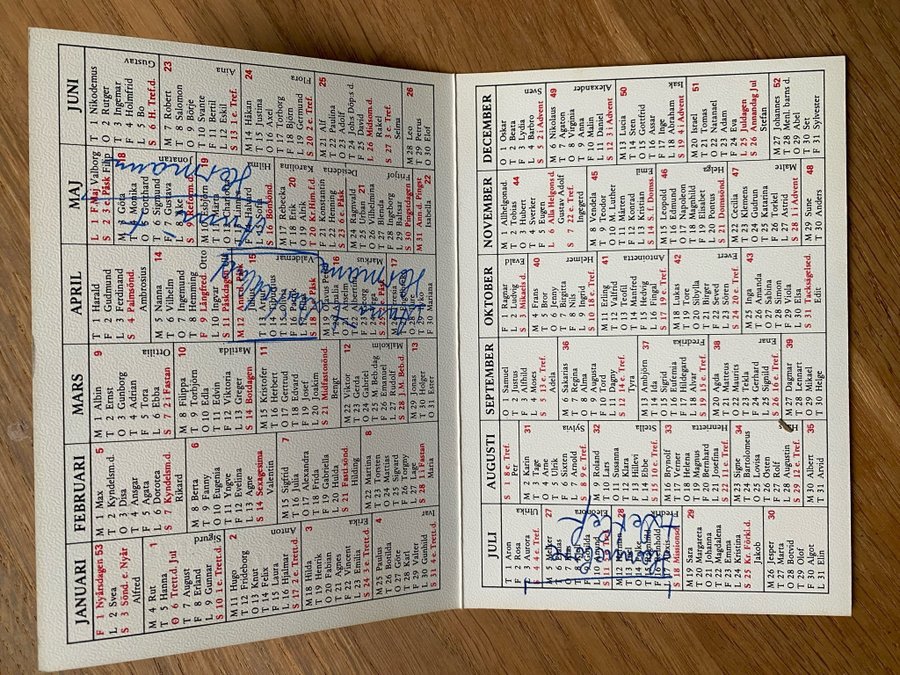 JANUARI
F 1 Nyårsdagen 53
L 2 Svea
S 3 Sönd. e. Nyår
Alfred
M 4 Rut 1
T 5 Hanna
O 6 Trett.d. Jul
T 7 August
F 8 Erland
L 9 Gunnar
S 10 1 e. Trett.d.
Sigurd
M 11 Hugo 2
T 12 Fridebon
O 13 Knut
T 14 Felix
F 15 Laura
L 16 Hjalmar
S 17 2 e. Trett.d.
Anton
M 18 Hilda 3
T 19 Henrik
O 20 Fabian
T 21 Agnes
F 22 Vincent
L 23 Emilia
S 24 3 e. Trett.d.
Erika
M 25 Paulus 4
T 26 Bodil
O 27 Göte
T 28 Karl
F 29 Valter
L 30 Gunhild
Ivar
FEBRUARI
M 1 Max 5
T 2 Kyndelsm.d.
O 3 Disa
T 4 Ansgar
F 5 Agata
L 6 Dorotea
S 7 Kyndelsm.d.
Rikard
M 8 Berta 6
T 9 Fanny
O 10 Eugenia
T 11 Yngve
F 12 Evelina
L 13 Agne
S 14 Sexagesima
Valentin
M 15 Sigfrid 7
T 16 Julia
O 17 Alexandra
T 18 Frida
F 19 Gabriella
L 20 Hulda
S 21 Fastl.sönd.
Hilding
M 22 Martina 8
T 23 Torsten
O 24 Mattias
T 25 Sigvard
F 26 Torgny
L 27 Lage
S 28 1 i Fastan
Maria
MARS
M 1 Albin 9
T 2 Ernst
O 3 Gunborg
T 4 Adrian
F 5 Tora
L 6 Ebba
S 7 2 i Fastan
Ottilia
M 8 Filippa 10
T 9 Torbjörn
O 10 Edla
T 11 Edvin
F 12 Viktoria
L 13 Greger
S 14 Botdagen
Matilda
M 15 Kristofer 11
T 16 Herbert
O 17 Gertrud
T 18 Edvard
F 19 Josef
L 20 Joakim
S 21 Midfastosönd.
Bengt
M 22 Viktor 12
T 23 Gerda
O 24 Gabriel
T 25 M. Beb.dag
F 26 Emanuel
L 27 Rudolf
S 28 J. M. Beb.d.
Malkolm
M 29 Jonas 13
T 30 Holger
O 31 Ester
APRIL
T 1 Harald
F 2 Gudmund
L 3 Ferdinand
S 4 Palmsönd.
Ambrosius
M 5 Nanna 14
T 6 Vilhelm
O 7 Ingemund
T 8 Hemming
F 9 Långfred. Otto
L 10 Ingvar
S 11 Påskdagen
15
Valdemar
Markus
17
Mariana
Hermann
MAJ
L 1 F. Maj Valborg
S 2 3 e. Påsk Filip
18
M 3 Göta
T 4 Monika
O 5 Gotthard
T 6 Sigmund
F 7 Gustava
L 8 Åke
S 9 Reform.d.
Jonatan
19
Hilma
S 16 Bönsönd.
M 17 Rebecka
T 18 Erik
O 19 Alrik
T 20 Kr. Him.f.d.
Karolina
F 21 Konstantin
L 22 Henning
S 23 6 e. Påsk
Desideria
M 24 Ragnhild
T 25 Urban
O 26 Vilhelmina
T 27 Blenda
F 28 Ingeborg
L 29 Baltsar
S 30 Pingstdagen
Fritjof
M 31 Ann.d. Pingst
Isabella
Hermann
JUNI
T 1 Nikodemus
O 2 Rutger
T 3 Ingemar
F 4 Holmfrid
L 5 Bo
S 6 H. Tref.d.
Gustav
M 7 Robert 23
T 8 Salomon
O 9 Börje
T 10 Svante
F 11 Bertil
L 12 Eskil
S 13 1 e. Tref.
Aina
M 14 Håkan 24
T 15 Justina
O 16 Axel
T 17 Torborg
F 18 Björn
L 19 Germund
S 20 2 e. Tref.
Flora
M 21 Alf 25
T 22 Paulina
O 23 Adolf
T 24 Joh:s Döp:s d.
F 25 David
L 26 Midsom.d.
Rakel
S 27 3 e. Tref.
Selma
M 28 Leo 26
T 29 Petrus
O 30 Elof
JULI
T 1 Aron
F 2 Rosa
L 3 Aurora
S 4 4 e. Tref.
Ulrika
27
Eleonora
28
S 18 Missionsd.
Fredrik
M 19 Sara 29
T 20 Margareta
O 21 Johanna
T 22 Magdalena
F 23 Emma
L 24 Kristina
S 25 Kr. Förkl.d.
Jakob
M 26 Jesper 30
T 27 Marta
O 28 Botvid
T 29 Olof
F 30 Algot
L 31 Elin
AUGUSTI
S 1 8 e. Tref.
Per
M 2 Karin 31
T 3 Tage
O 4 Arne
T 5 Ulrik
F 6 Sixten
L 7 Arnold
S 8 9 e. Tref.
Sylvia
M 9 Roland 32
T 10 Lars
O 11 Susanna
T 12 Klara
F 13 Hillevi
L 14 Ebbe
S 15 10 e. Tref.
Stella
M 16 Brynolf 33
T 17 Verner
O 18 Helena
T 19 Magnus
F 20 Bernhard
L 21 Josefina
S 22 11 e. Tref.
Henrietta
M 23 Signe 34
T 24 Bartolomeus
O 25 Lovisa
T 26 Östen
F 27 Rolf
L 28 Augustin
S 29 12 e. Tref.
M 30 Albert 35
T 31 Arvid
SEPTEMBER
O 1 Samuel
T 2 Justus
F 3 Alfhild
L 4 Moses
S 5 13 e. Tref.
Adela
M 6 Sakarias 36
T 7 Regina
O 8 Alma
T 9 Augusta
F 10 Tord
L 11 Dagny
S 12 14 e. Tref.
Tyra
M 13 Ambjörn 37
T 14 Ida
O 15 Sigrid
T 16 Eufemia
F 17 Hildegard
L 18 Alvar
S 19 15 e. Tref.
Fredrika
M 20 Agda 38
T 21 Matteus
O 22 Maurits
T 23 Tekla
F 24 Gerhard
L 25 Signild
S 26 16 e. Tref.
Enar
M 27 Dagmar 39
T 28 Lennart
O 29 Mikael
T 30 Helge
OKTOBER
F 1 Ragnar
L 2 Ludvig
S 3 Mikaels d.
Evald
M 4 Frans 40
T 5 Bror
O 6 Jenny
T 7 Birgitta
F 8 Nils
L 9 Ingrid
S 10 18 e. Tref.
Helmer
M 11 Erling 41
T 12 Valfrid
O 13 Teofil
T 14 Manfred
F 15 Hedvig
L 16 Fingal
S 17 19 e. Tref.
Antoinetta
M 18 Lukas 42
T 19 Tore
O 20 Sibylla
T 21 Birger
F 22 Seved
L 23 Sören
S 24 20 e. Tref.
Evert
M 25 Inga 43
T 26 Amanda
O 27 Sabina
T 28 Simon
F 29 Viola
L 30 Elsa
S 31 Tacksägelsed.
Edit
NOVEMBER
M 1 Allhelgonad. 44
T 2 Tobias
O 3 Hubert
T 4 Sverker
F 5 Eugen
L 6 Alla Helgons d.
Gustav Adolf
S 7 22 e. Tref.
Ingegerd
M 8 Vendela 45
T 9 Teodor
O 10 M. Luther
T 11 Mårten
F 12 Konrad
L 13 Kristian
S 14 S. f. Doms.
Emil
M 15 Leopold 46
T 16 Edmund
O 17 Napoleon
T 18 Magnhild
F 19 Elisabet
L 20 Pontus
S 21 Domssönd.
Helga
M 22 Cecilia 47
T 23 Klemens
O 24 Gudrun
T 25 Katarina
F 26 Torkel
L 27 Astrid
S 28 1 i Advent
Malte
M 29 Sune 48
T 30 Anders
DECEMBER
O 1 Oskar
T 2 Beata
F 3 Lydia
L 4 Barbro
S 5 2 i Advent
Sven
M 6 Nikolaus 49
T 7 Agaton
O 8 Virginia
T 9 Anna
F 10 Malin
L 11 Daniel
S 12 3 i Advent
Alexander
M 13 Lucia 50
T 14 Sten
O 15 Gottfrid
T 16 Assar
F 17 Inge
L 18 Abraham
S 19 4 i Advent
Isak
M 20 Israel 51
T 21 Tomas
O 22 Natanael
T 23 Adam
F 24 Eva
L 25 Juldagen
S 26 Annandag Jul
Stefan
M 27 Johannes 52
T 28 Menl. barns d.
O 29 Abel
T 30 Set
F 31 Sylvester